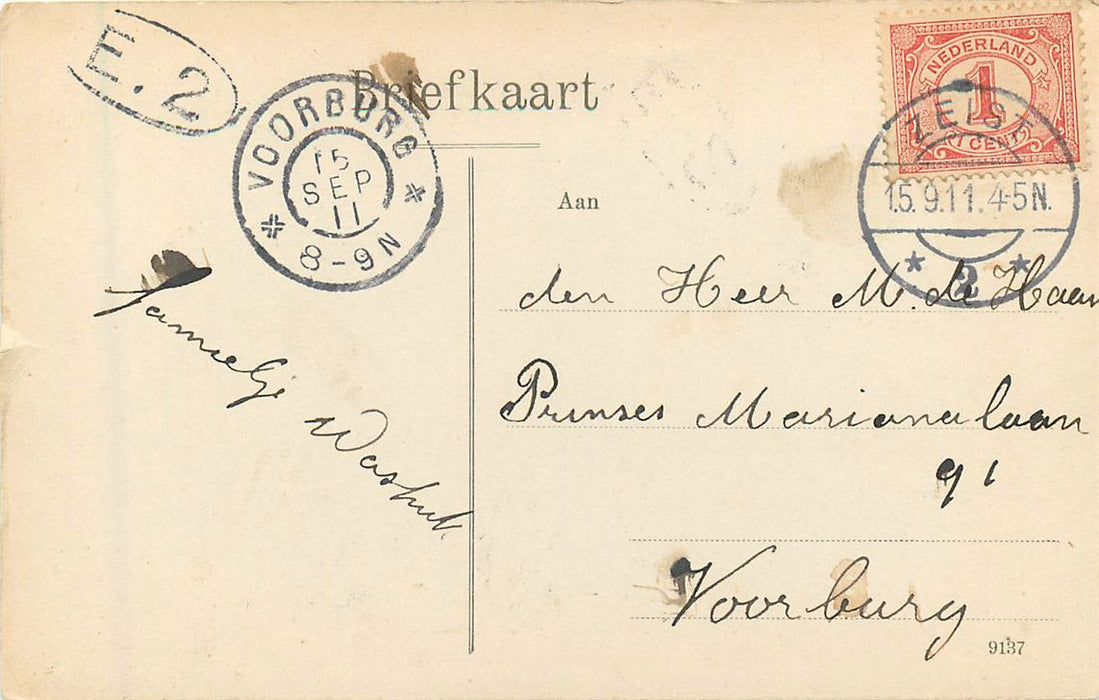 E. 2
Briefkaart
VOORBURG
15
SEP
11
8-9N
NEDERLAND
1
1 CENT
ZEIST
15.9.11.4-5N.
2
Aan
den Heer M. de Haan
Prinses Marianalaan
91
Voorburg
9137